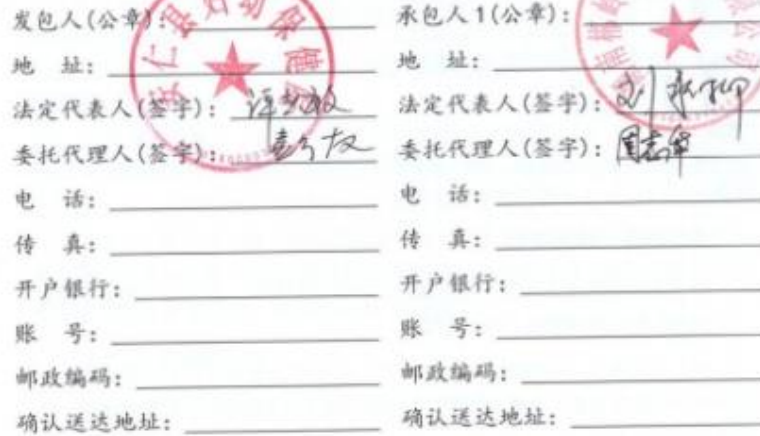 发包人(公章):
地 址:
法定代表人(签字):
委托代理人(签字):
电 话:
传 真:
开户银行:
账 号:
邮政编码:
确认送达地址:
安仁县妇幼保健
承包人1(公章):
地 址:
法定代表人(签字):
委托代理人(签字): 周志军
电 话:
传 真:
开户银行:
账 号:
邮政编码:
确认送达地址: